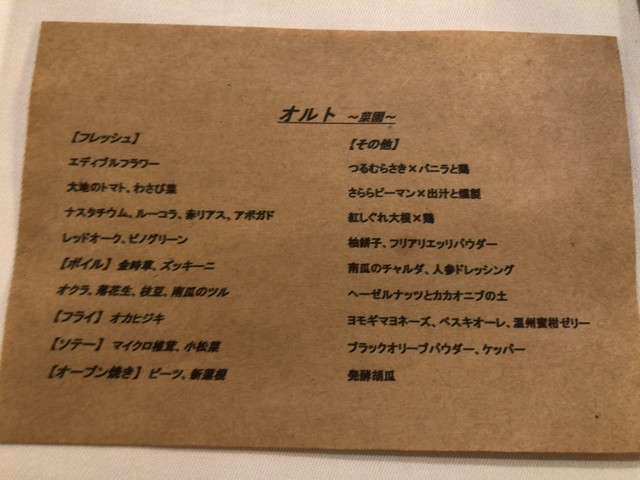 オルト ～菜園～
【フレッシュ】
エディブルフラワー
大地のトマト、わさび菜
ナスタチウム、ルーコラ、赤リアス、アボガド
レッドオーク、ピノグリーン
【ボイル】 金時草、ズッキーニ
オクラ、落花生、枝豆、南瓜のツル
【フライ】 オカヒジキ
【ソテー】 マイクロ椎茸、小松菜
【オーブン焼き】 ビーツ、新蓮根
【その他】
つるむらさき×バニラと鶏
さららピーマン×出汁と燻製
紅しぐれ大根×鶏
柚餅子、フリアリエッリパウダー
南瓜のチャルダ、人参ドレッシング
ヘーゼルナッツとカカオニブの土
ヨモギマヨネーズ、ペスキオーレ、温州蜜柑ゼリー
ブラックオリーブパウダー、ケッパー
発酵胡瓜